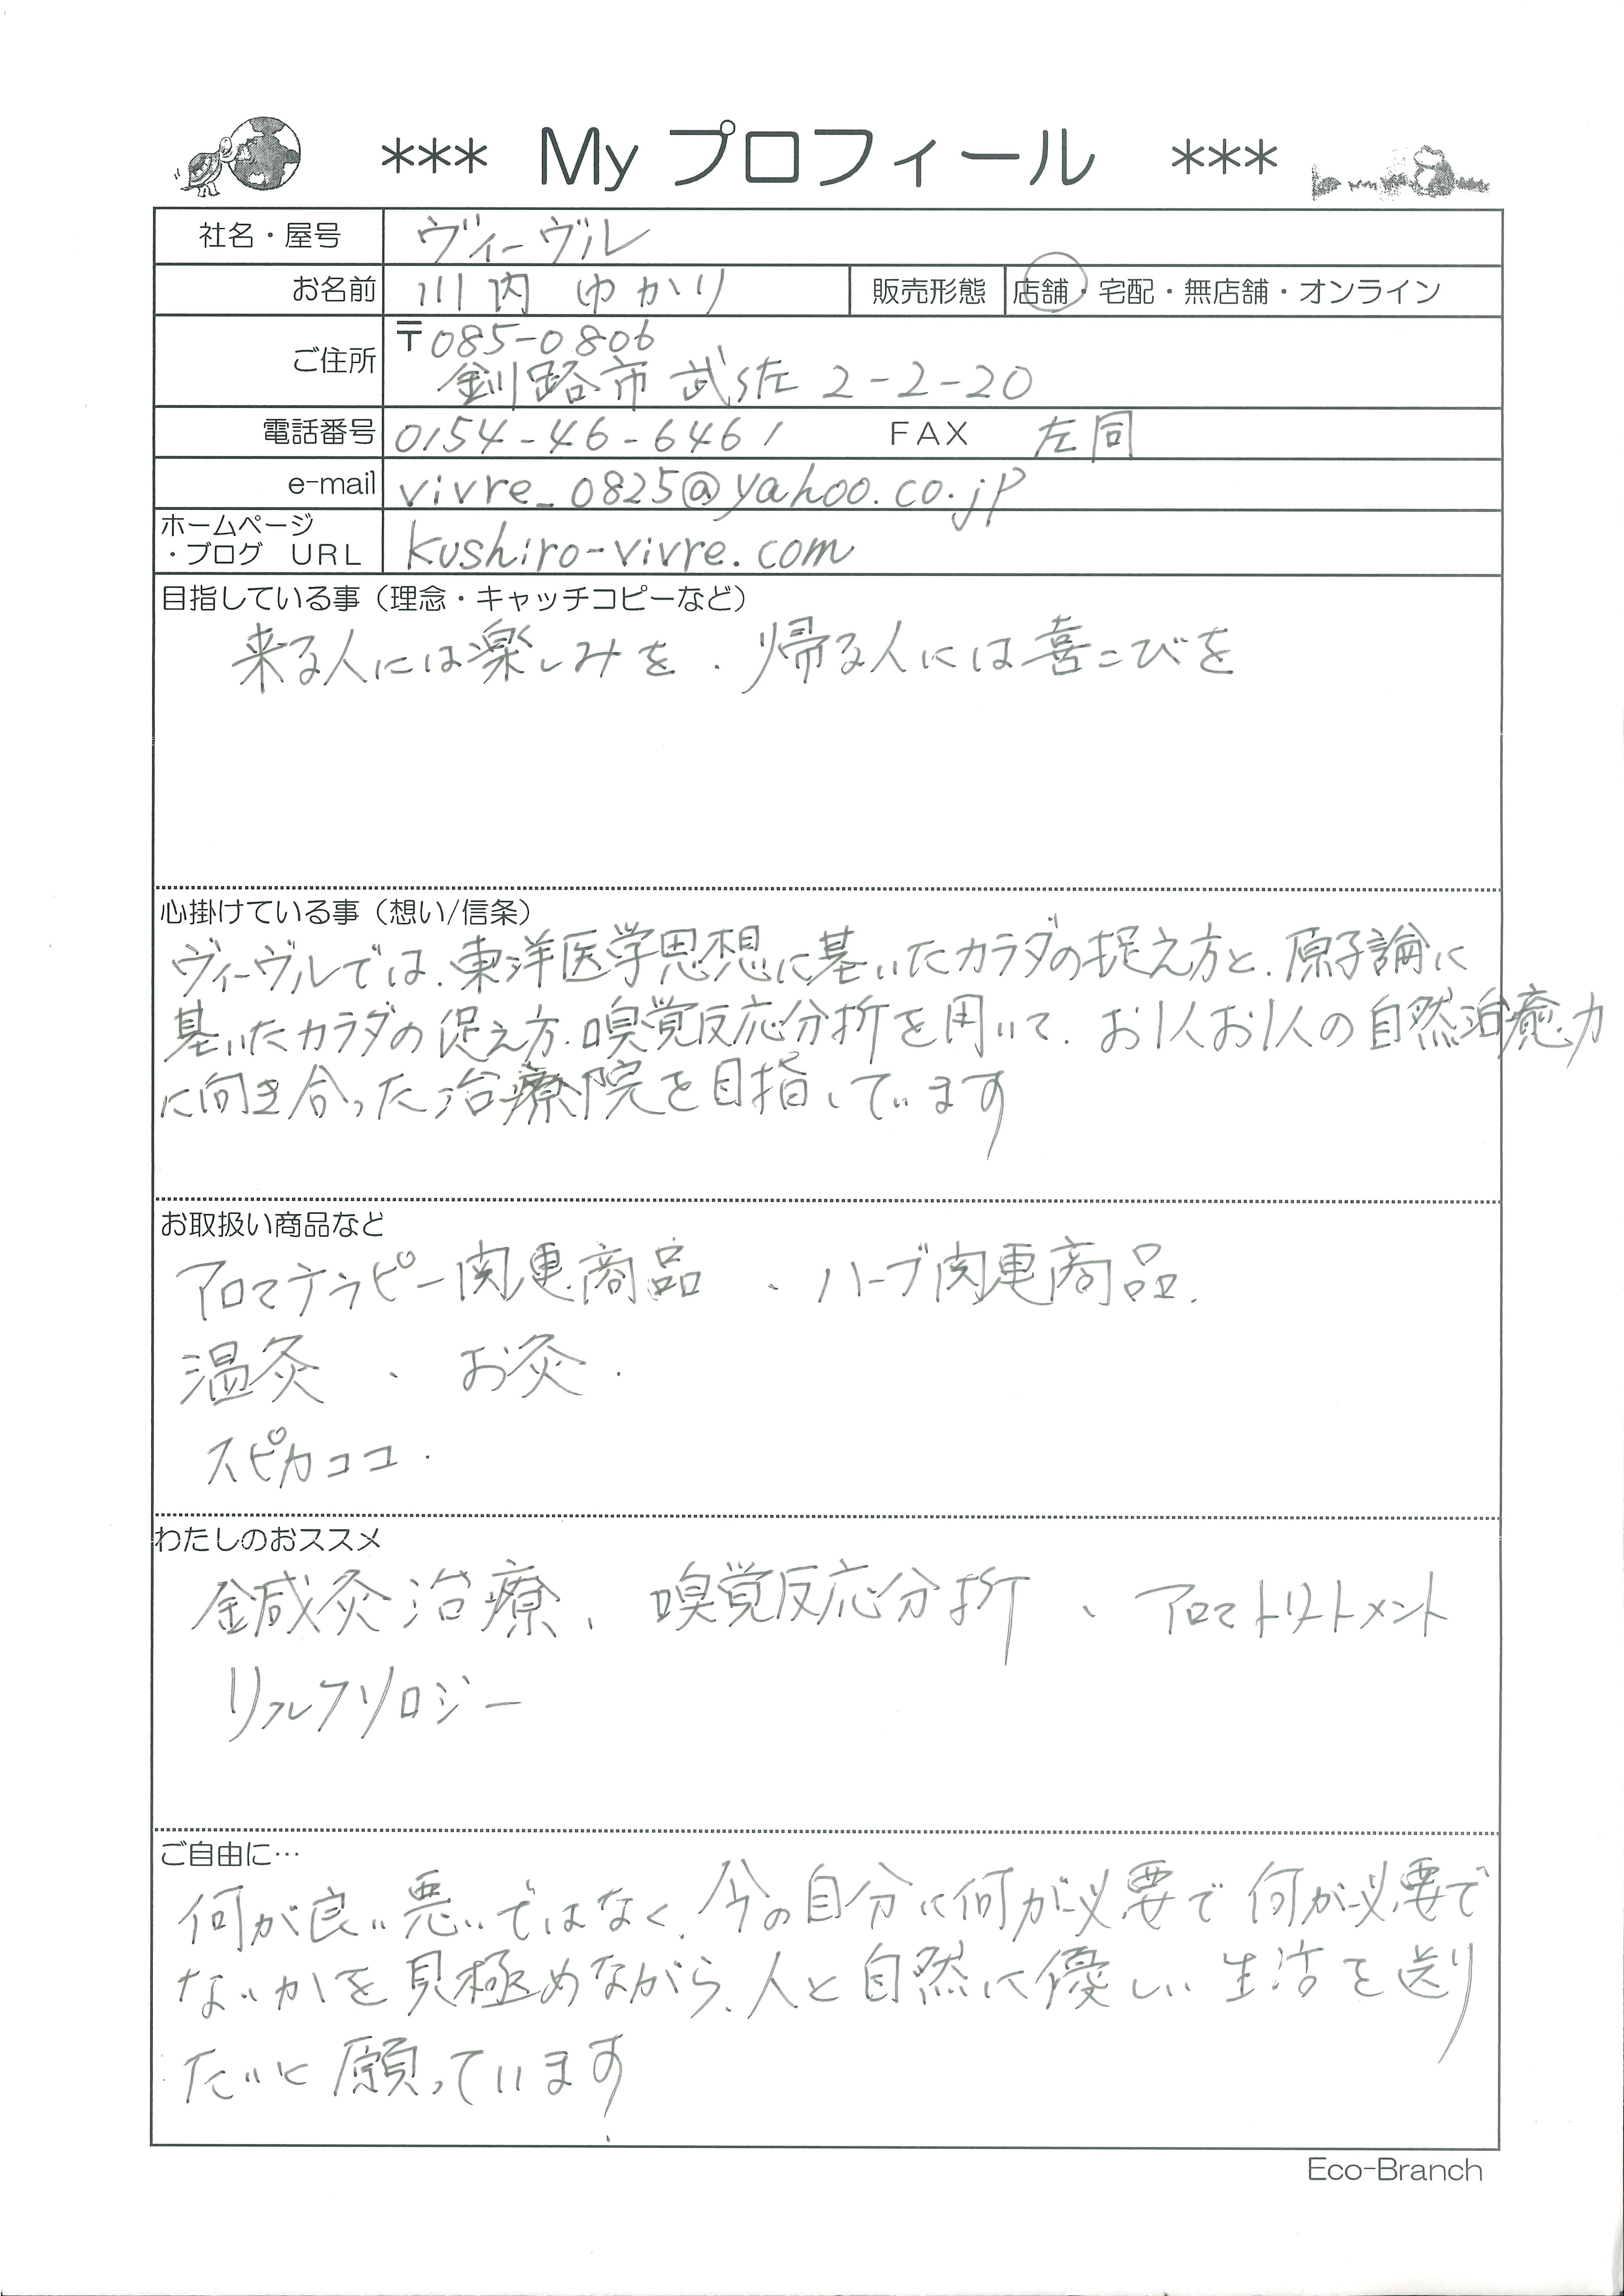 *** My プロフィール ***
社名・屋号 ヴィーヴル
お名前 川内 ゆかり 販売形態 店舗・宅配・無店舗・オンライン
ご住所 〒085-0806
釧路市 武佐 2-2-20
電話番号 0154-46-6461 FAX 左同
e-mail vivre_0825@yahoo.co.jp
ホームページ
・ブログ URL kushiro-vivre.com
目指している事（理念・キャッチコピーなど）
来る人には楽しみを、帰る人には喜こびを
心掛けている事（想い/信条）
ヴィーヴルでは、東洋医学思想に基いたカラダの捉え方と、原子論に
基いたカラダの捉え方、嗅覚反応分折を用いて、お1人お1人の自然治癒力
に向き合った治療院を目指しています
お取扱い商品など
アロマテラピー関連商品 、ハーブ関連商品、
温灸 、 お灸、
スピカココ、
わたしのおススメ
鍼灸治療、嗅覚反応分折 、アロマトリートメント
リフレクソロジー
ご自由に…
何が良い悪いではなく、今の自分に何が必要で 何が必要で
ないかを見極めながら、人と自然に優しい 生活を送り
たいと願っています
Eco-Branch